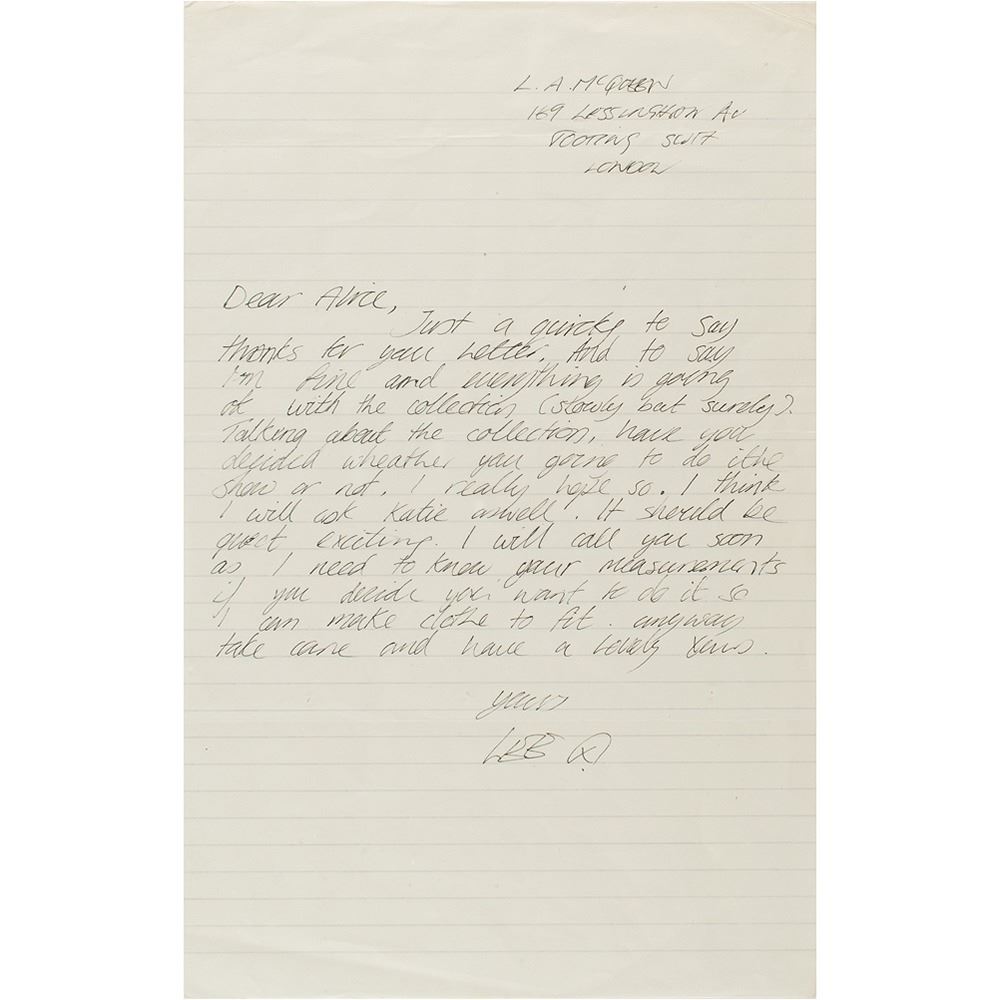 L. A. McQueen
169 Lessingham Av
Tooting SW17
London
Dear Alice,
Just a quicky to say
thanks for you letter. And to say
I'm fine and everything is going
ok with the collection (slowly but surely).
Talking about the collection, have you
decided wheather you going to do the
show or not. I really hope so. I think
I will ask Katie . It should be
exciting. I will call you soon
as I need to know your measurements
if you decide you want to do it so
I can make clothe to fit. anyway
take care and have a lovely Xmas.
yours
LEE Q